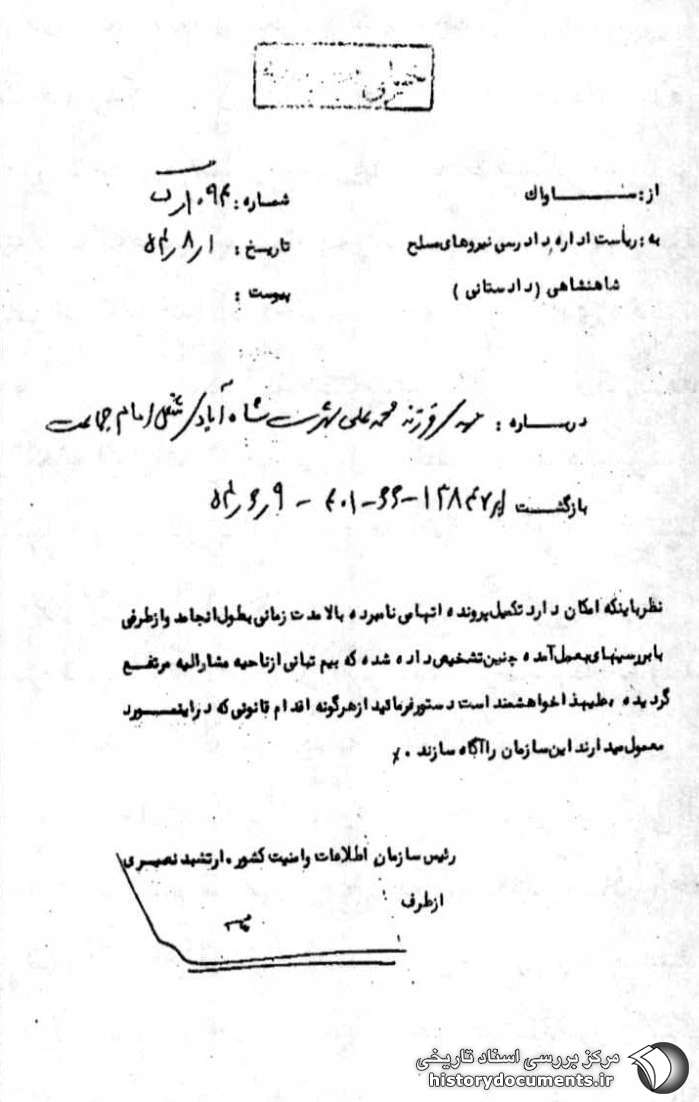 از: ســـــاواك
شماره:
به: ریاست اداره دادرسی نیروهای مسلح
تاریخ: ۵۴٫۸٫۱
شاهنشاهی (دادستانی)
پیوست:
دربـــاره: فرزند محمد علی شهرت شاه آبادی شغل امام جماعت
بازگشت ۵۴٫۶٫۹ – ۴۰۱–۶۶–۱۳۸۴۷
نظر باینکه امکان دارد تکمیل پرونده اتهامی نامبرده بالا مدت زمانی بطول انجامد و از طرفی
با بررسیهای بعمل آمده چنین تشخیص داده شده که بیم تبانی از ناحیه مشارالیه مرتفع
گردیده، علیهذا خواهشمند است دستور فرمائید از هرگونه اقدام قانونی که در اینمـــورد
معمول میدارند این سازمان را آگاه سازند.
رئیس سازمان اطلاعات و امنیت کشور. ارتشبد نصیری
از طرف
مرکز بررسی اسناد تاریخی
historydocuments.ir